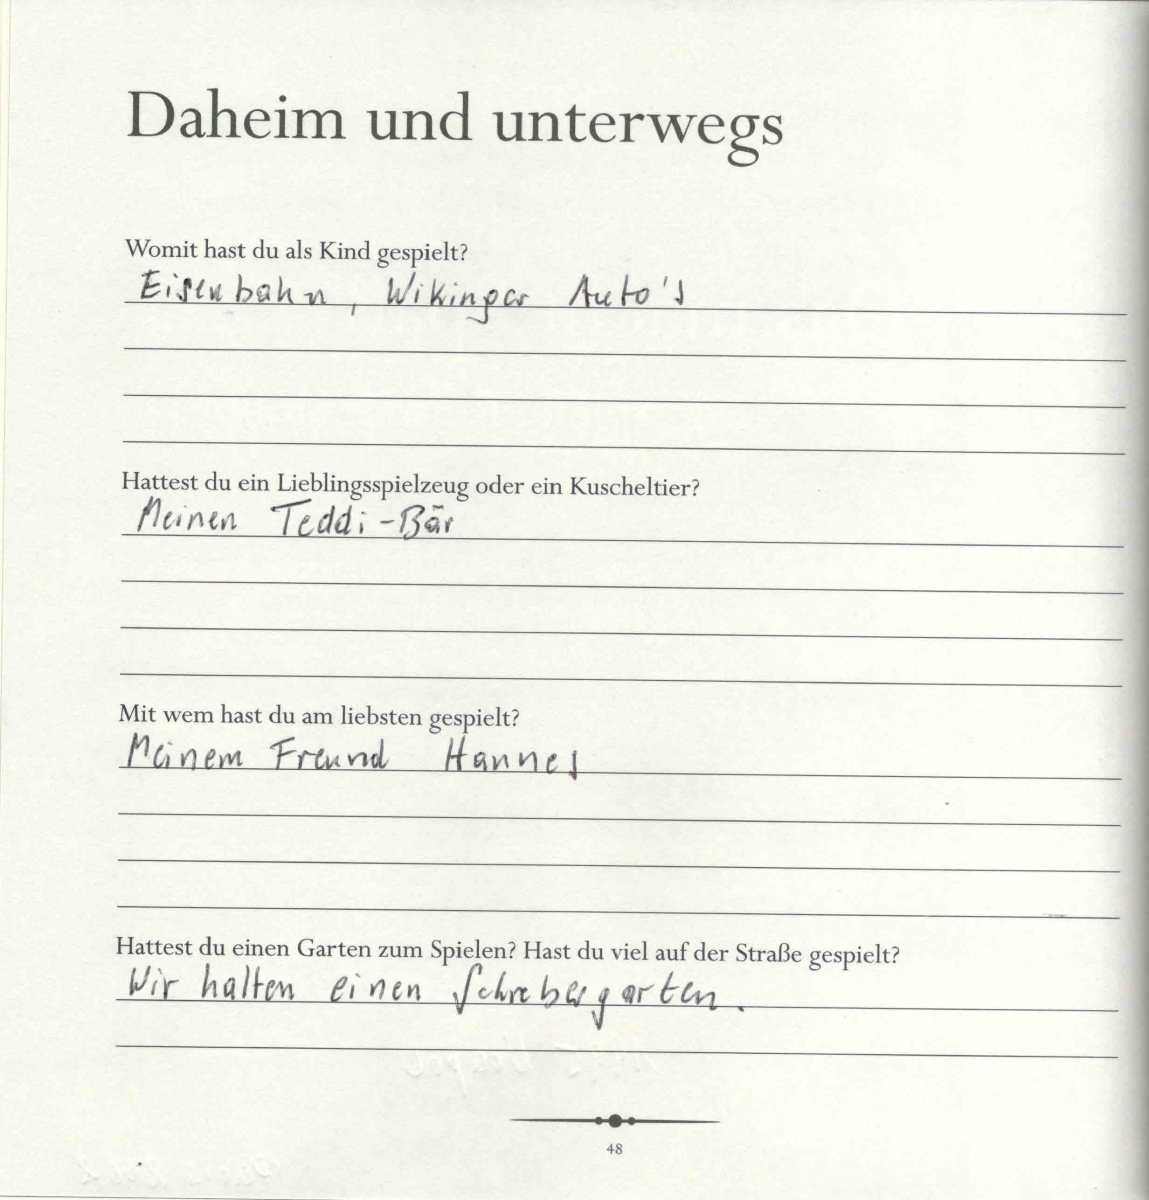 Daheim und unterwegs
Womit hast du als Kind gespielt?
Eisenbahn, Wikinger Auto's
Hattest du ein Lieblingsspielzeug oder ein Kuscheltier?
Meinen Teddi-Bär
Mit wem hast du am liebsten gespielt?
Meinem Freund Hannes
Hattest du einen Garten zum Spielen? Hast du viel auf der Straße gespielt?
Wir hatten einen Schrebergarten.
48